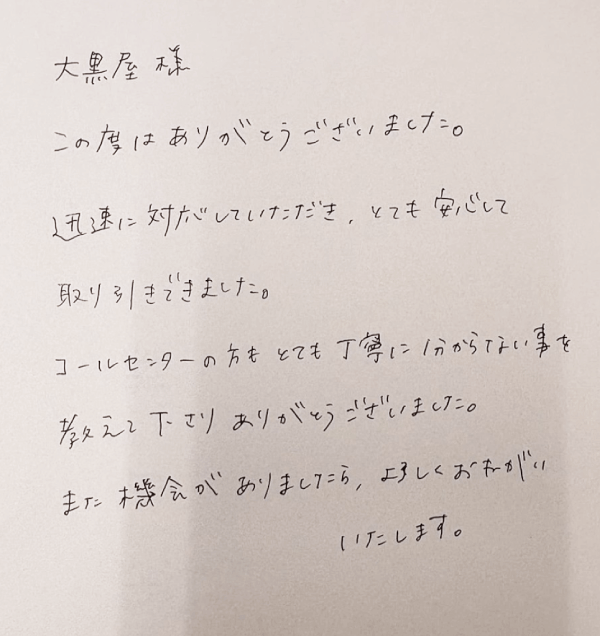 大黒屋 様
この度はありがとうございました。
迅速に対応していただき、とても安心して
取り引きできました。
コールセンターの方もとても丁寧に分からない事を
教えて下さりありがとうございました。
また機会がありましたら、よろしくおねがい
いたします。